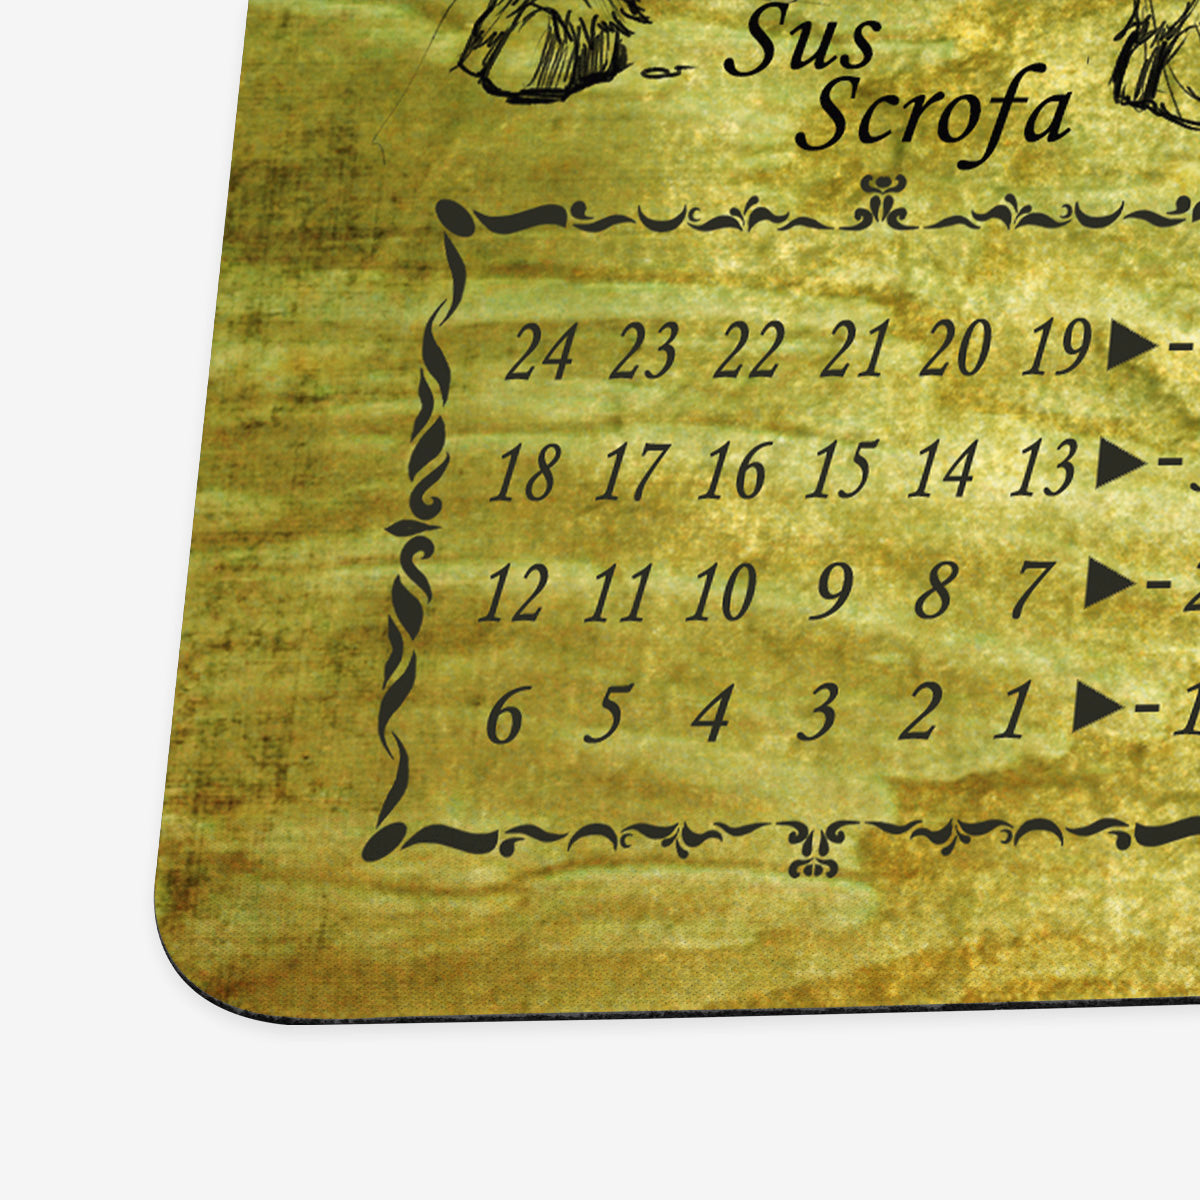 Sus
Scrofa
24 23 22 21 20 19 ▶-
18 17 16 15 14 13 ▶-
12 11 10 9 8 7 ▶-2
6 5 4 3 2 1 ▶-1